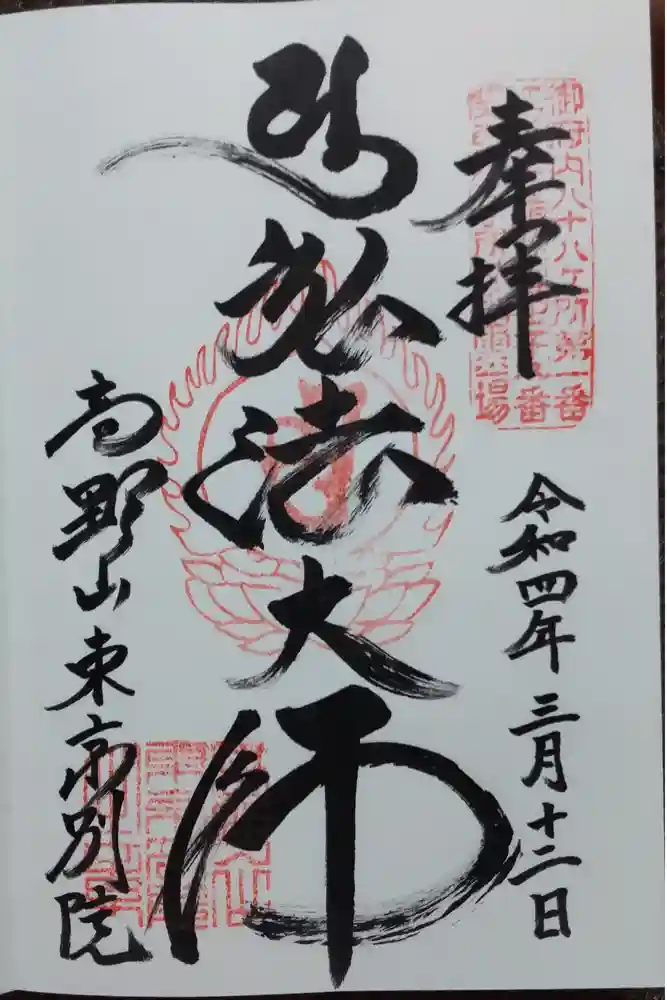 御府内八十八ヶ所第一番
奉拝
令和四年三月十二日
弘法大師
高野山東京別院